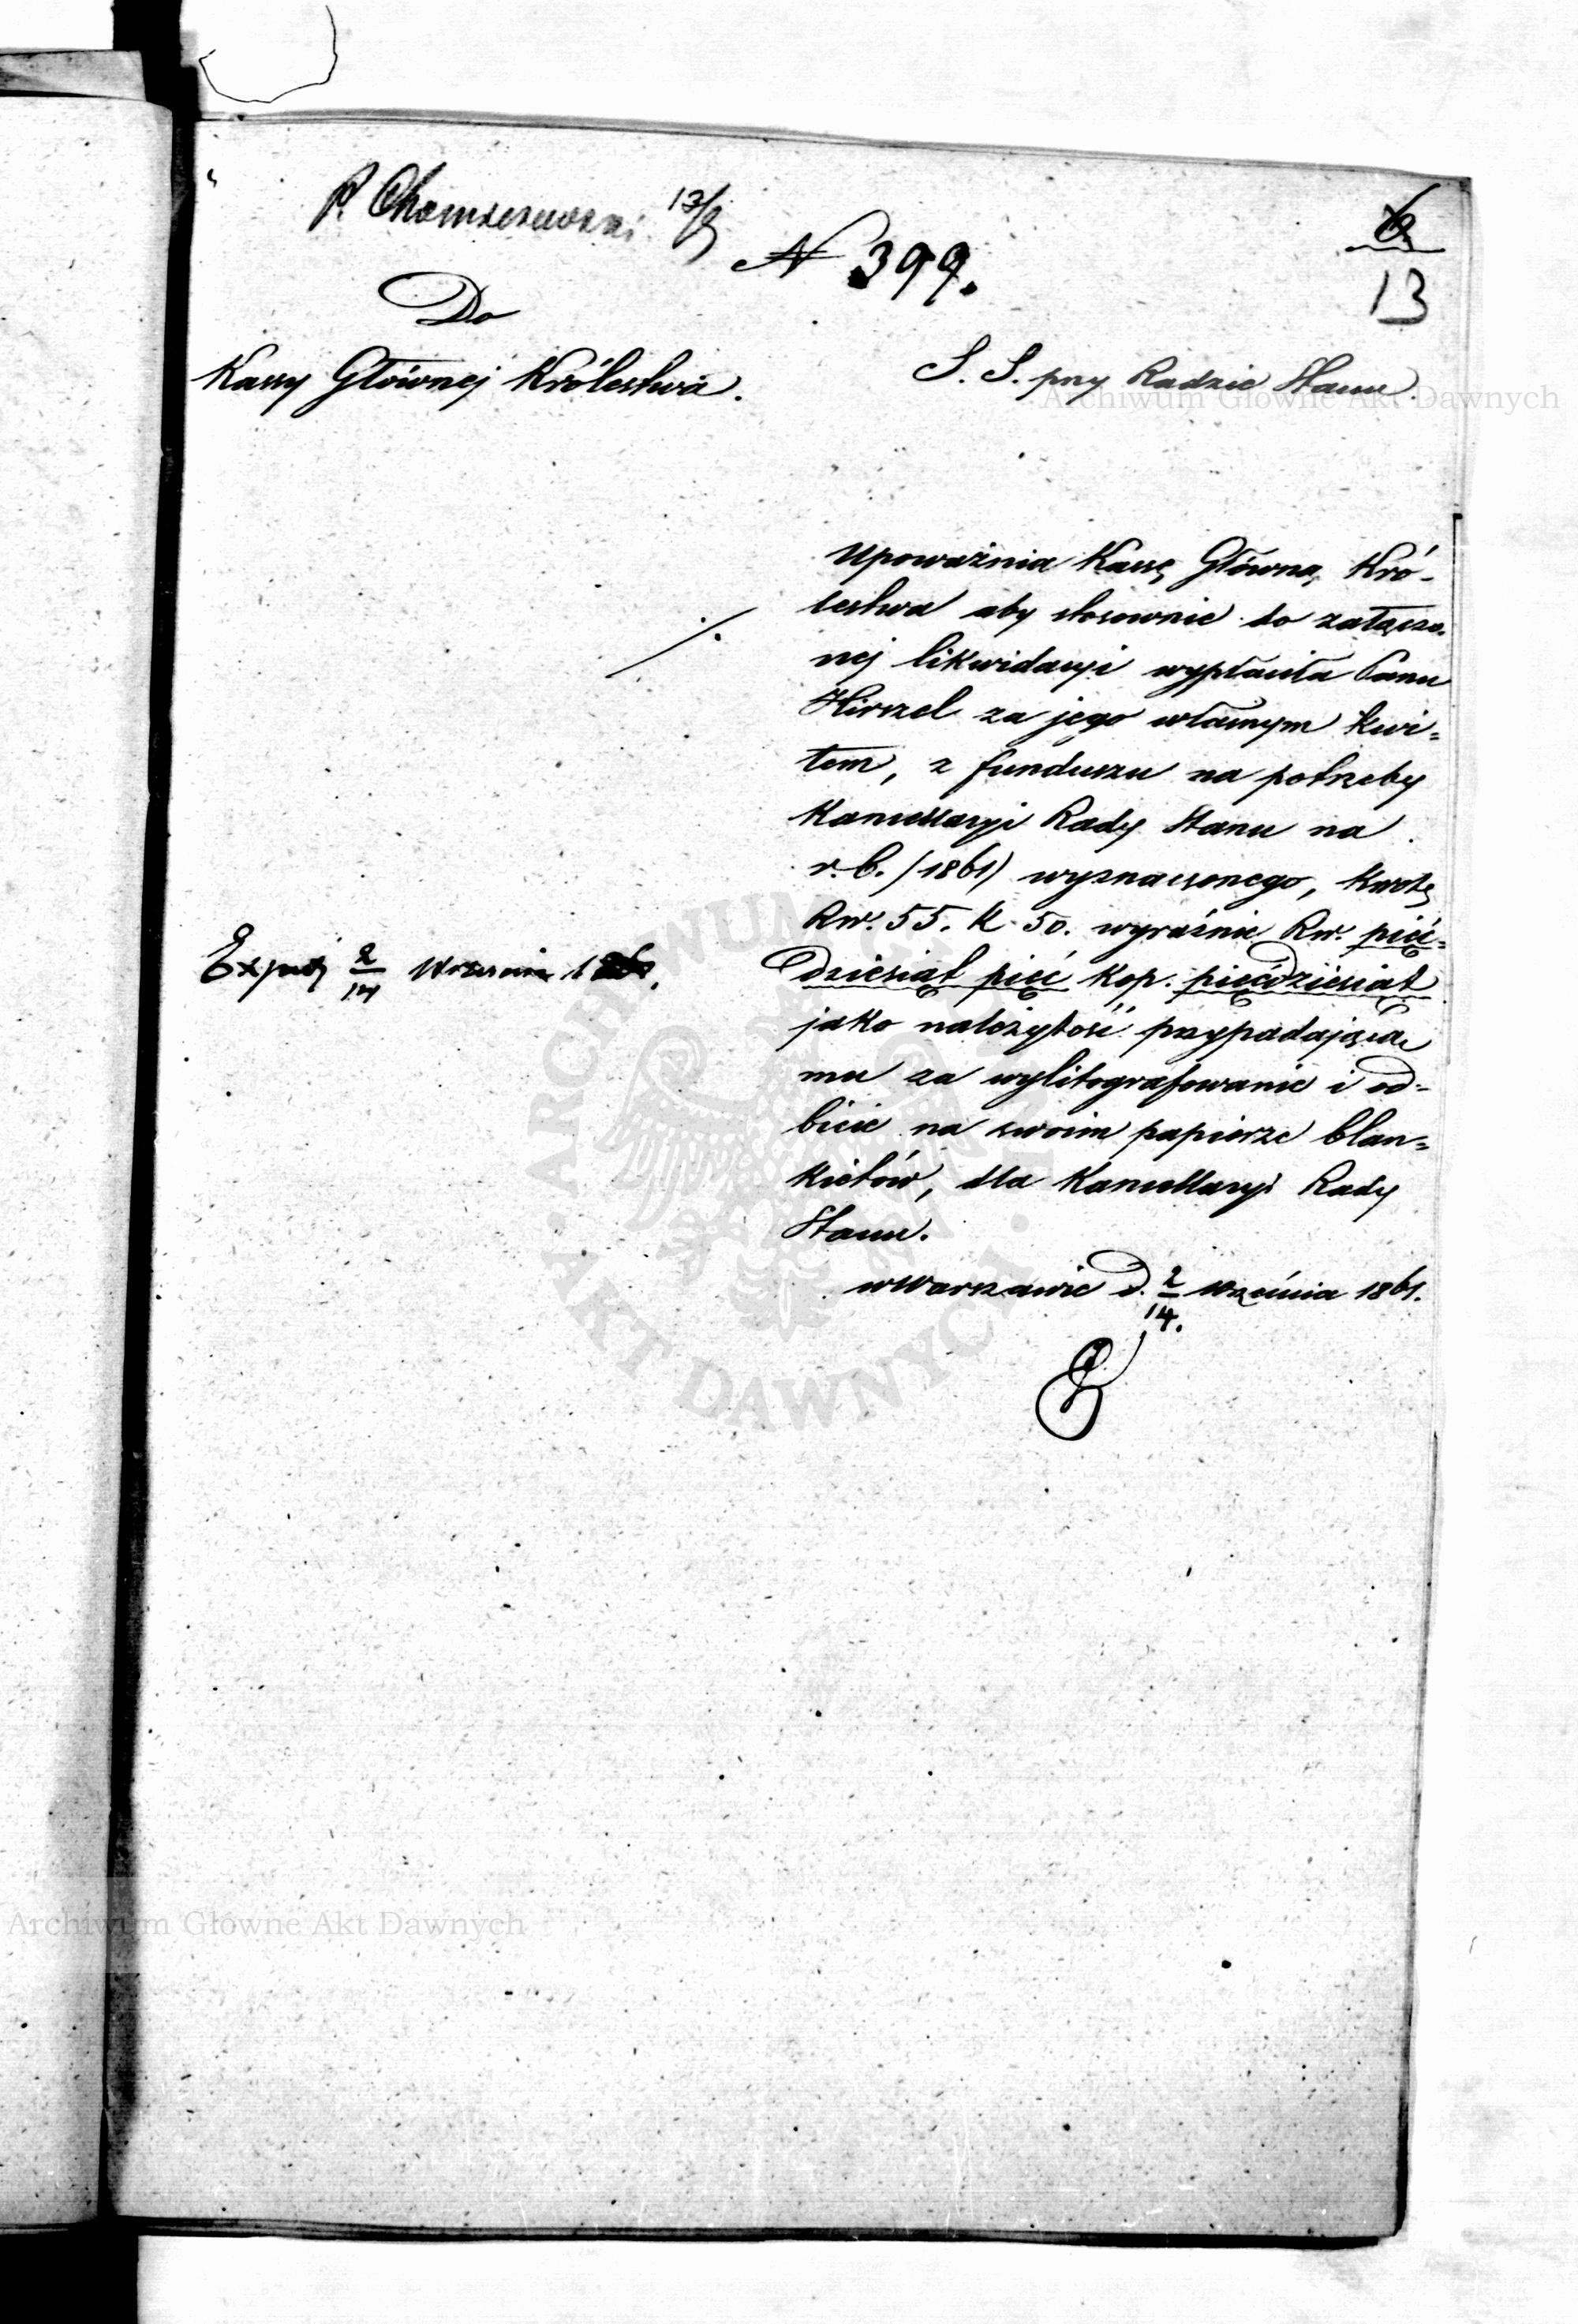 P. Chomszewski 13/9
N 399.
13
Do
Kassy Głównej Królestwa.
S. S. przy Radzie Stanu.
Archiwum Główne Akt Dawnych
Upoważnia Kassę Główną Kró-
lestwa aby stosownie do załączo-
nej likwidacyi wypłaciła Panu
Hirszel za jego własnym kwi=
tem, z funduszu na potrzeby
Kancellaryi Rady Stanu na
r. b. (1861) wyznaczonego, kwotę
Rsr. 55. k. 50. wyraźnie Rsr. pięć=
dziesiąt pięć kop. pięćdziesiąt
jako należytość przypadającą
mu za wylitografowanie i od=
bicie na swoim papierze blan=
kietów, dla Kancellaryi Rady
Stanu.
w Warszawie d. 2/14. Września 1861.
Exped. 2/14 Września 1861.
ARCHIWUM GŁÓWNE AKT DAWNYCH
Archiwum Główne Akt Dawnych